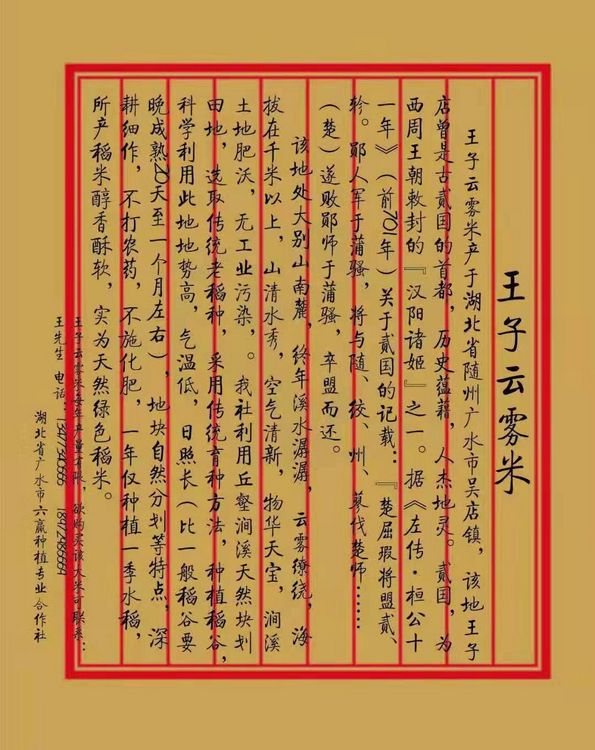 王子云雾米
王子云雾米产于湖北省随州广水市吴店镇，该地王子
店曾是古贰国的首都，历史蕴藉，人杰地灵。贰国，为
西周王朝敕封的『汉阳诸姬』之一。据《左传·桓公十
一年》（前701年）关于贰国的记载：『楚屈瑕将盟贰、
轸。郧人军于蒲骚，将与随、绞、州、蓼伐楚师……
（楚）遂败郧师于蒲骚，卒盟而还。
该地处大别山南麓，终年溪水潺潺，云雾缭绕，海
拔在千米以上，山清水秀，空气清新，物华天宝，涧溪
土地肥沃，无工业污染。我社利用丘壑涧溪天然块划
田地，选取传统老稻种，采用传统育种方法，种植稻谷，
科学利用此地地势高，气温低，日照长（比一般稻谷要
晚成熟20天至一个月左右），地块自然分划等特点，深
耕细作，不打农药，不施化肥，一年仅种植一季水稻，
所产稻米醇香酥软，实为天然绿色稻米。
王子云雾米每年产量有限，欲购买该大米可联系：
王先生 电话：
湖北省广水市六赢种植专业合作社